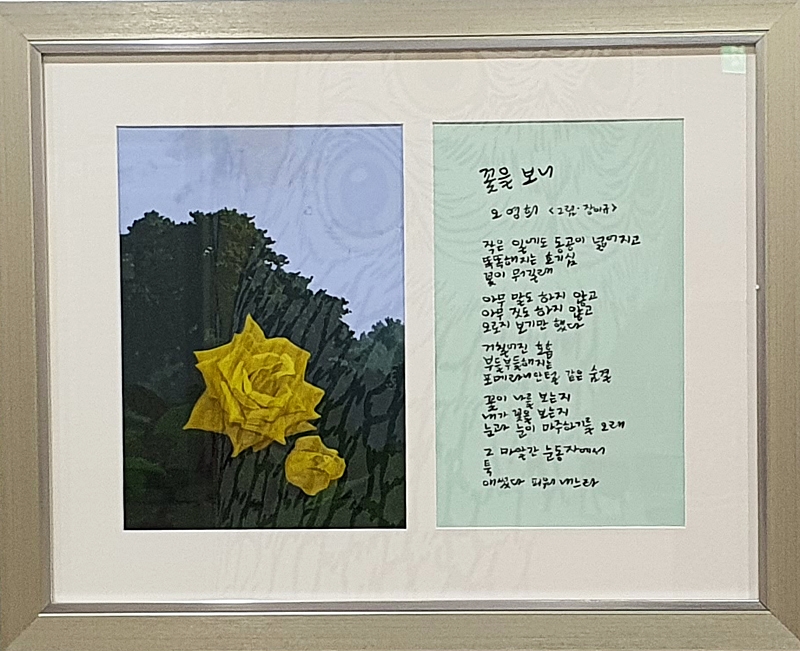 꽃을 보니
오영희 <그림·장미규>
작은 일에도 동공이 넓어지고
똑똑해지는 호기심
꽃이 뭐길래
아무 말도 하지 않고
아무 짓도 하지 않고
오로지 보기만 했다
거칠어진 호흡
부들부들해지는
포메라니안털 같은 숨결
꽃이 나를 보는지
내가 꽃을 보는지
눈과 눈이 마주하기를 오래
그 마알간 눈동자에서
툭
애썼다 피워내느라